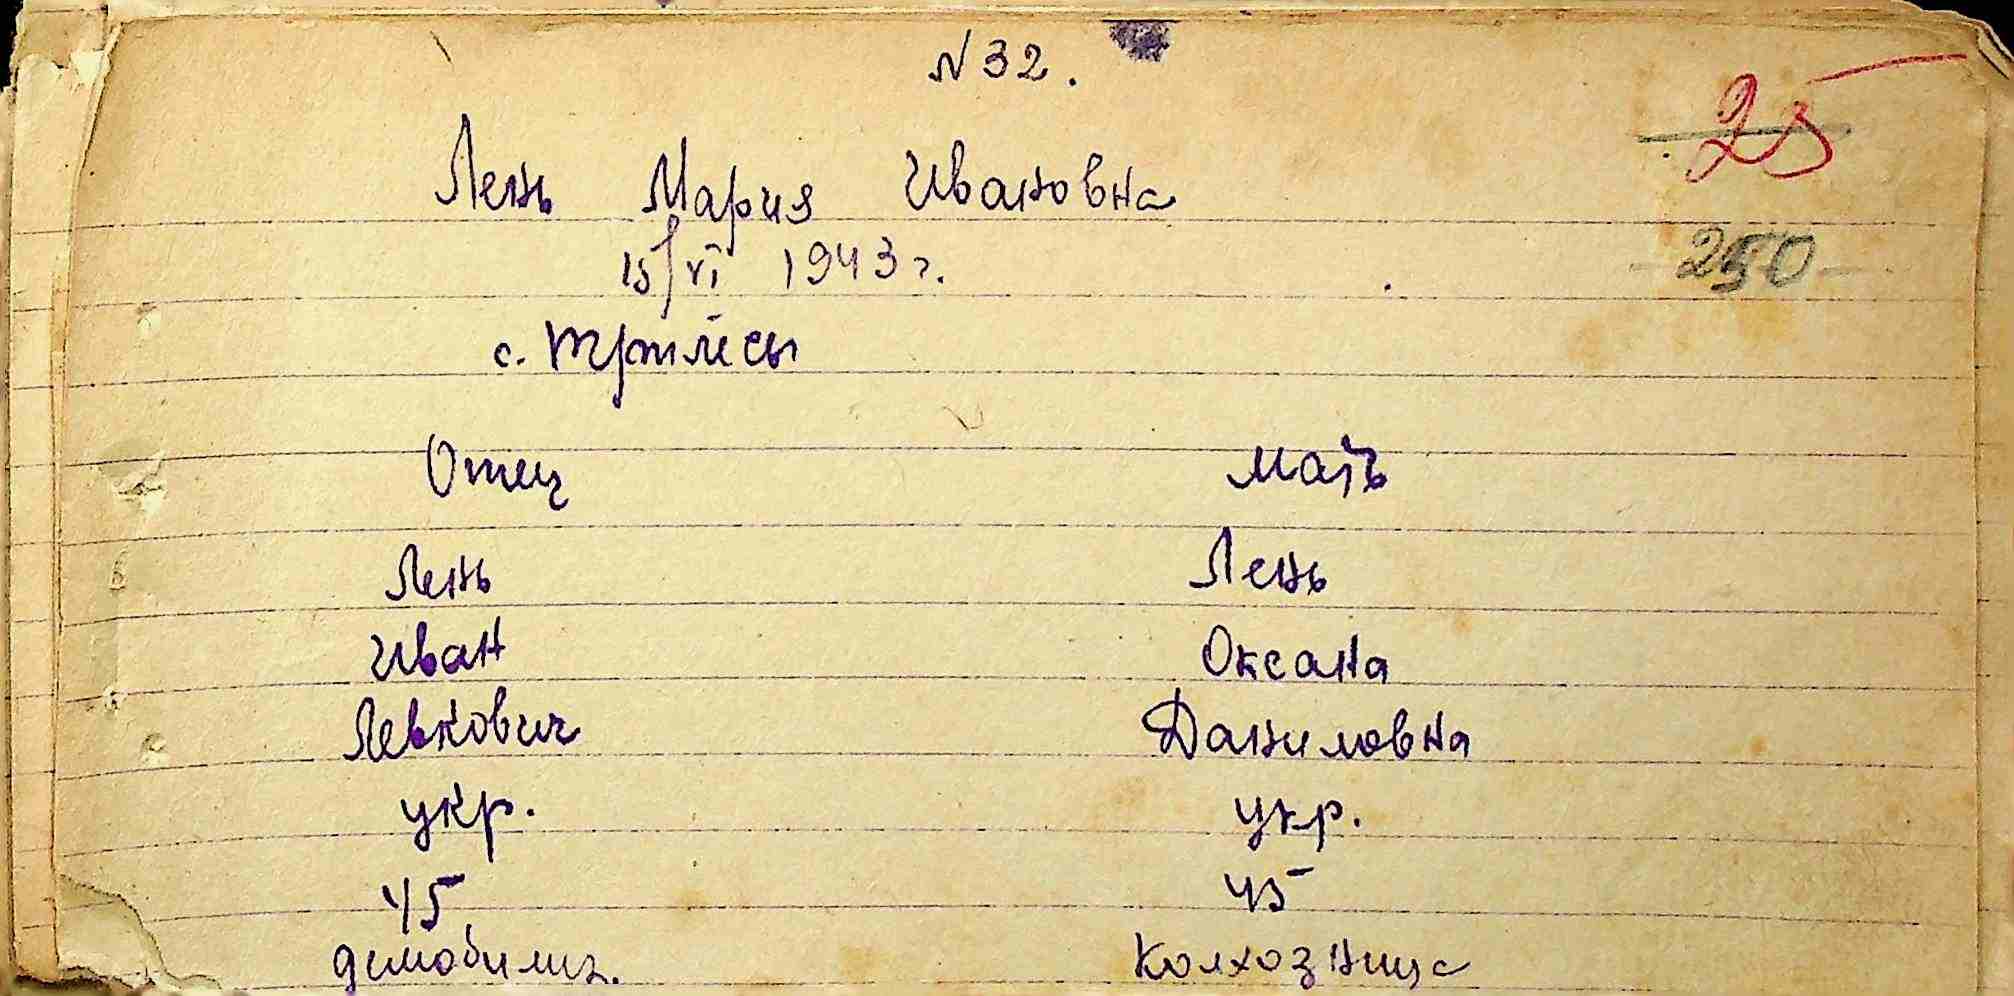 N 32.
25
Лень Мария Ивановна
15/VI 1943 г.
250
с. Трилесы
Отец Мать
Лень Лень
Иван Оксана
Левкович Даниловна
укр. укр.
45 45
демобилиз. колхозница